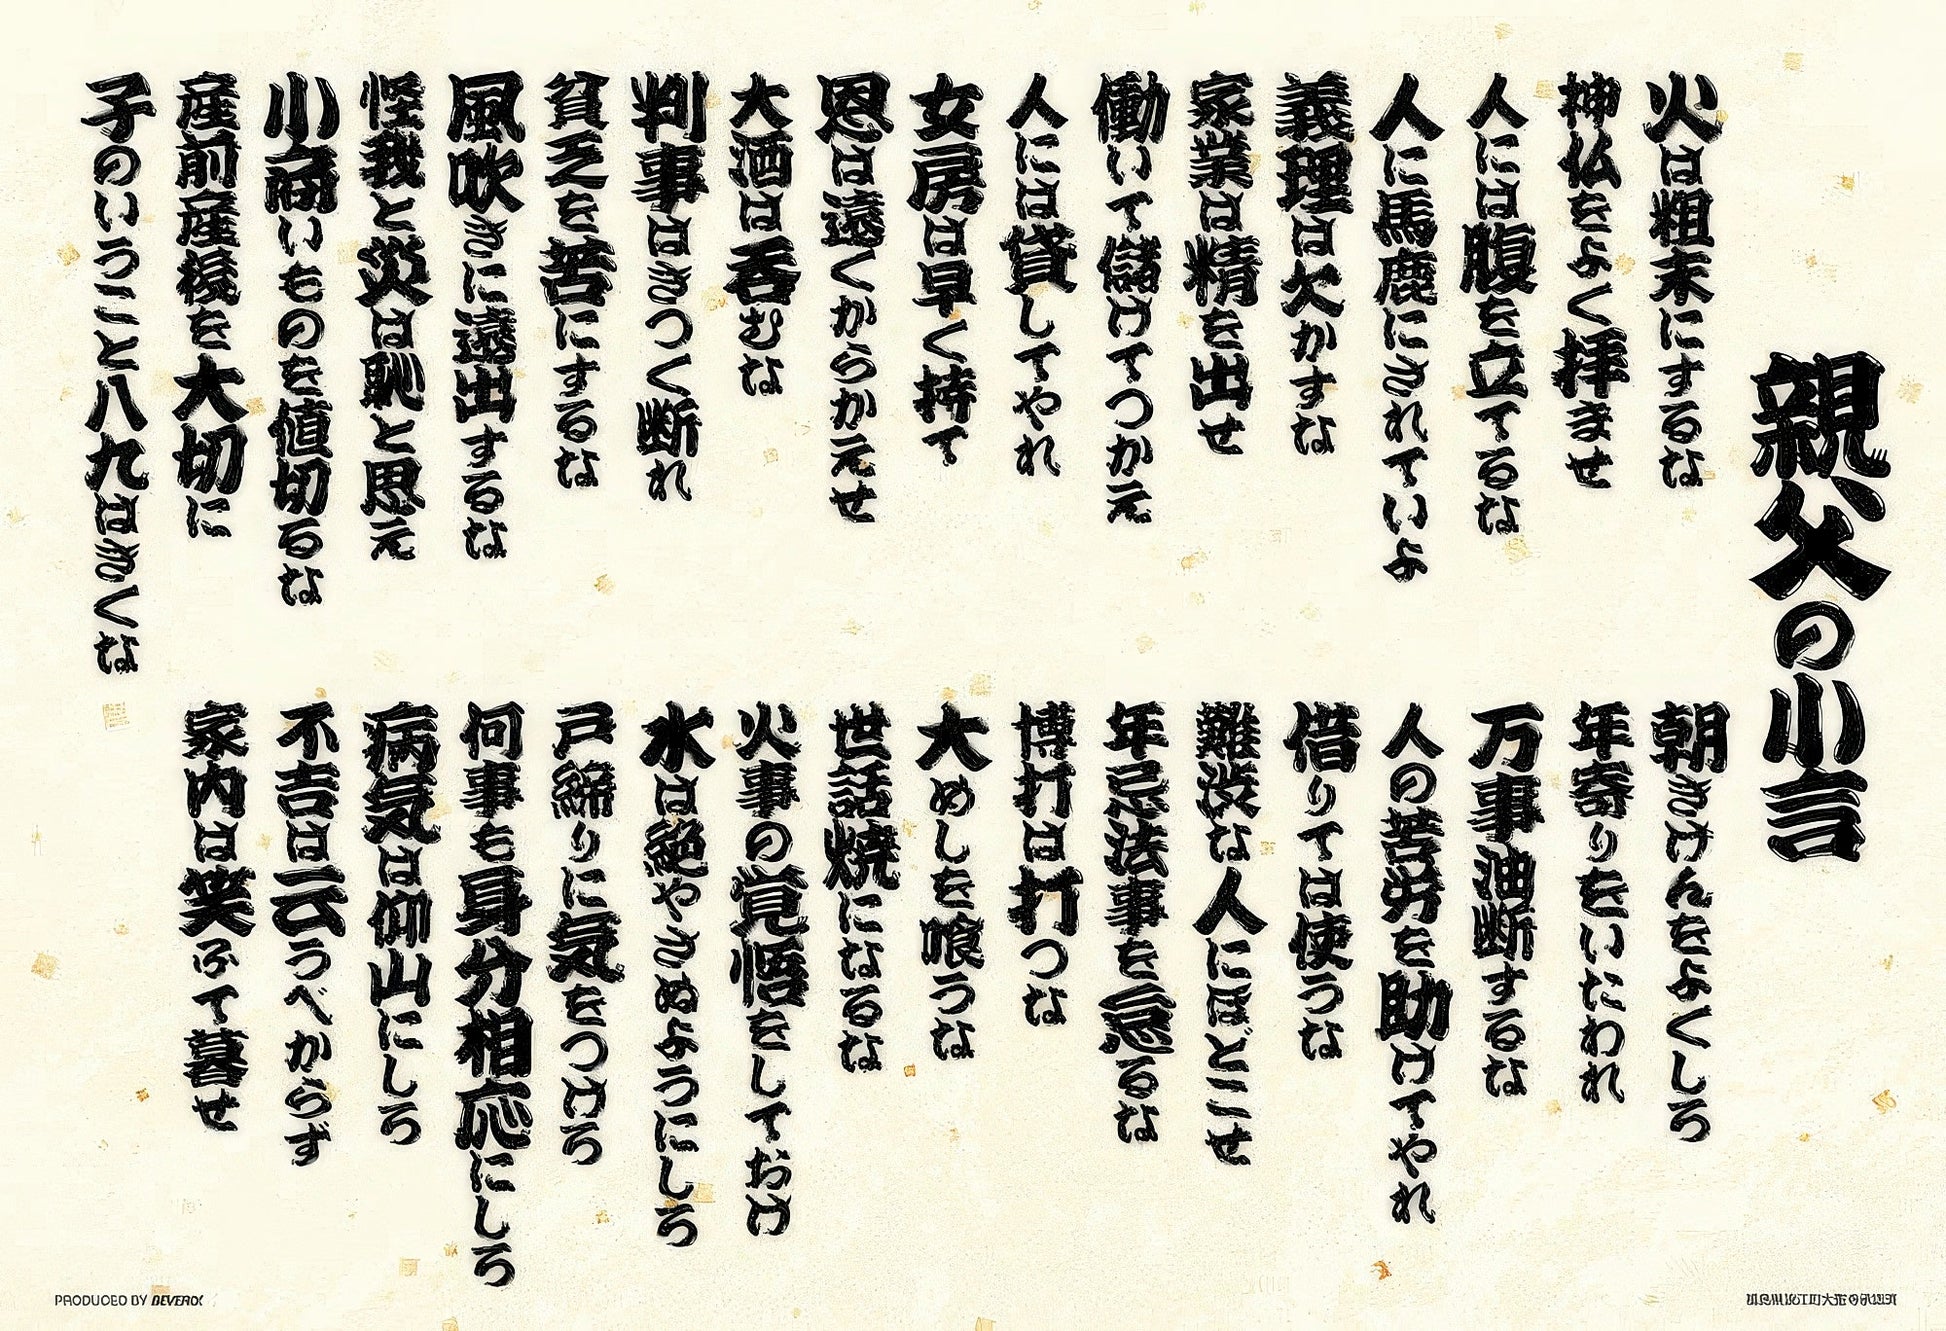 親父の小言
火は粗末にするな
神仏をよく拝ませ
人には腹を立てるな
人に馬鹿にされていよ
義理は欠かすな
家業は精を出せ
働いて儲けてつかえ
人には貸してやれ
女房は早く持て
恩は遠くからかえせ
大酒は呑むな
判事はきつく断れ
貧乏を苦にするな
風吹きに遠出するな
怪我と災は恥と思え
小商いものを値切るな
産前産後を大切に
子のいうこと八九はきくな
朝きげんをよくしろ
年寄りをいたわれ
万事油断するな
人の苦労を助けてやれ
借りては使うな
難渋な人にほどこせ
年忌法事を怠るな
博打は打つな
大めしを喰うな
世話焼になるな
火事の覚悟をしておけ
水は絶やさぬようにしろ
戸締りに気をつけろ
何事も身分相応にしろ
病気は仰山にしろ
不吉は云うべからず
家内は笑ふて暮せ
PRODUCED BY